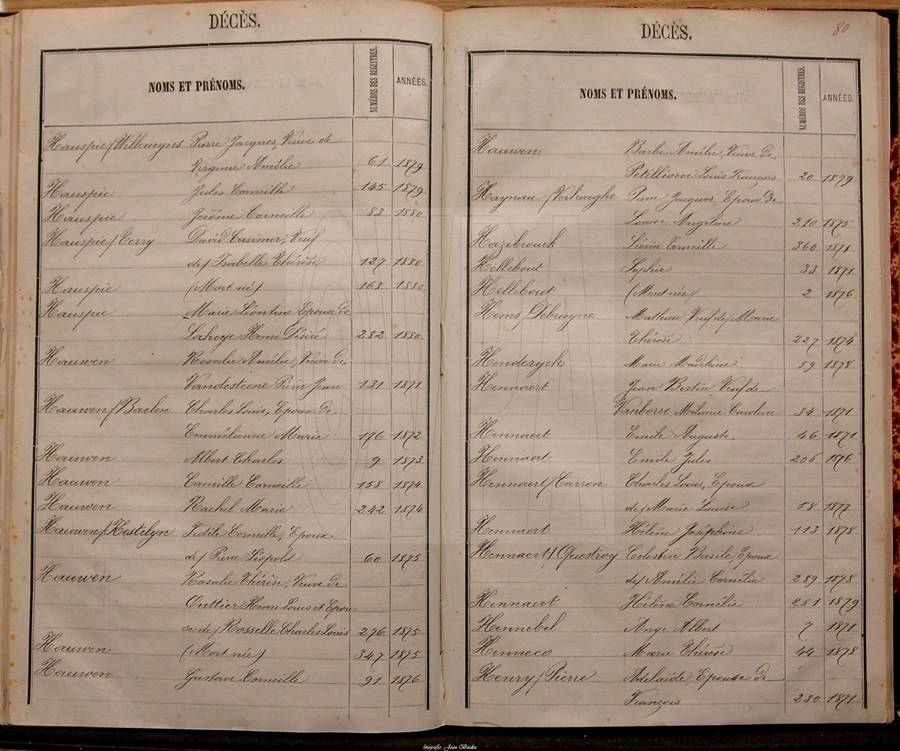 DÉCÈS.
NOMS ET PRÉNOMS. NUMÉROS DES REGISTRES ANNÉES.
Hauspie/Willemyns Pierre Jacques, Veuve de
Virginie Amélie 61 1879
Hauspie Jules Corneille 145 1879
Hauspie Jérôme Corneille 83 1880
Hauspie/Terry David Casimir, Veuf
de/ Isabelle Thérèse 127 1880
Hauspie (Mort né) 168 1880
Hauspie Marie Léontine Epouse de
Lahoye Henri Désiré 282 1880
Hauwen Rosalie Amélie, Veuve de
Vandesteene Pierre Jean 131 1871
Hauwen/Baelen Charles Louis, Epoux de
Emmélienne Marie 196 1872
Hauwen Albert Charles 9 1873
Hauwen Camille Corneille 158 1874
Hauwen Rachel Marie 242 1874
Hauwen/Kestelyn Fidèle Corneille, Epoux
de/ Pierre Léopold 60 1875
Hauwen Rosalie Thérèse, Veuve de
Outtier Henri Louis et Epou
se de/ Rosselle Charles Louis 276 1875
Hauwen (Mort né) 347 1875
Hauwen Gustave Corneille 91 1876
DÉCÈS. 80
NOMS ET PRÉNOMS. NUMÉROS DES REGISTRES ANNÉES.
Hauwen Barbe Amélie, Veuve de
Petillion Louis François 20 1879
Haynau/Verhaeghe Pierre Jacques, Epoux de
Louise Angeline 210 1875
Hazebrouck Liévin Corneille 360 1871
Hellebout Sophie 33 1871
Hellebout (Mort née) 2 1876
Hems, Debruyne Mathieu Veuf de/ Marie
Thérèse 227 1874
Henderyck Marie Madeleine 59 1878
Hennaert Jean Bertin Veuf de
Vanborre Mélanie Caroline 84 1871
Hennaert Emile Auguste 46 1871
Hennaert Emile Jules 206 1876
Hennaert/Carron Charles Louis, Epoux
de/ Marie Louise 58 1877
Hennaert Hélène Joséphine 113 1878
Hennaert/Questroy Celestin Basile Epoux
de/ Amélie Cornélie 289 1878
Hennaert Hélène Cornélie 251 1879
Hennebel Ange Albert 7 1871
Henneco Marie Thérèse 44 1878
Henry/Pierre Adelaide, Epouse de
François 230 1871
fotografie Jean Beckx